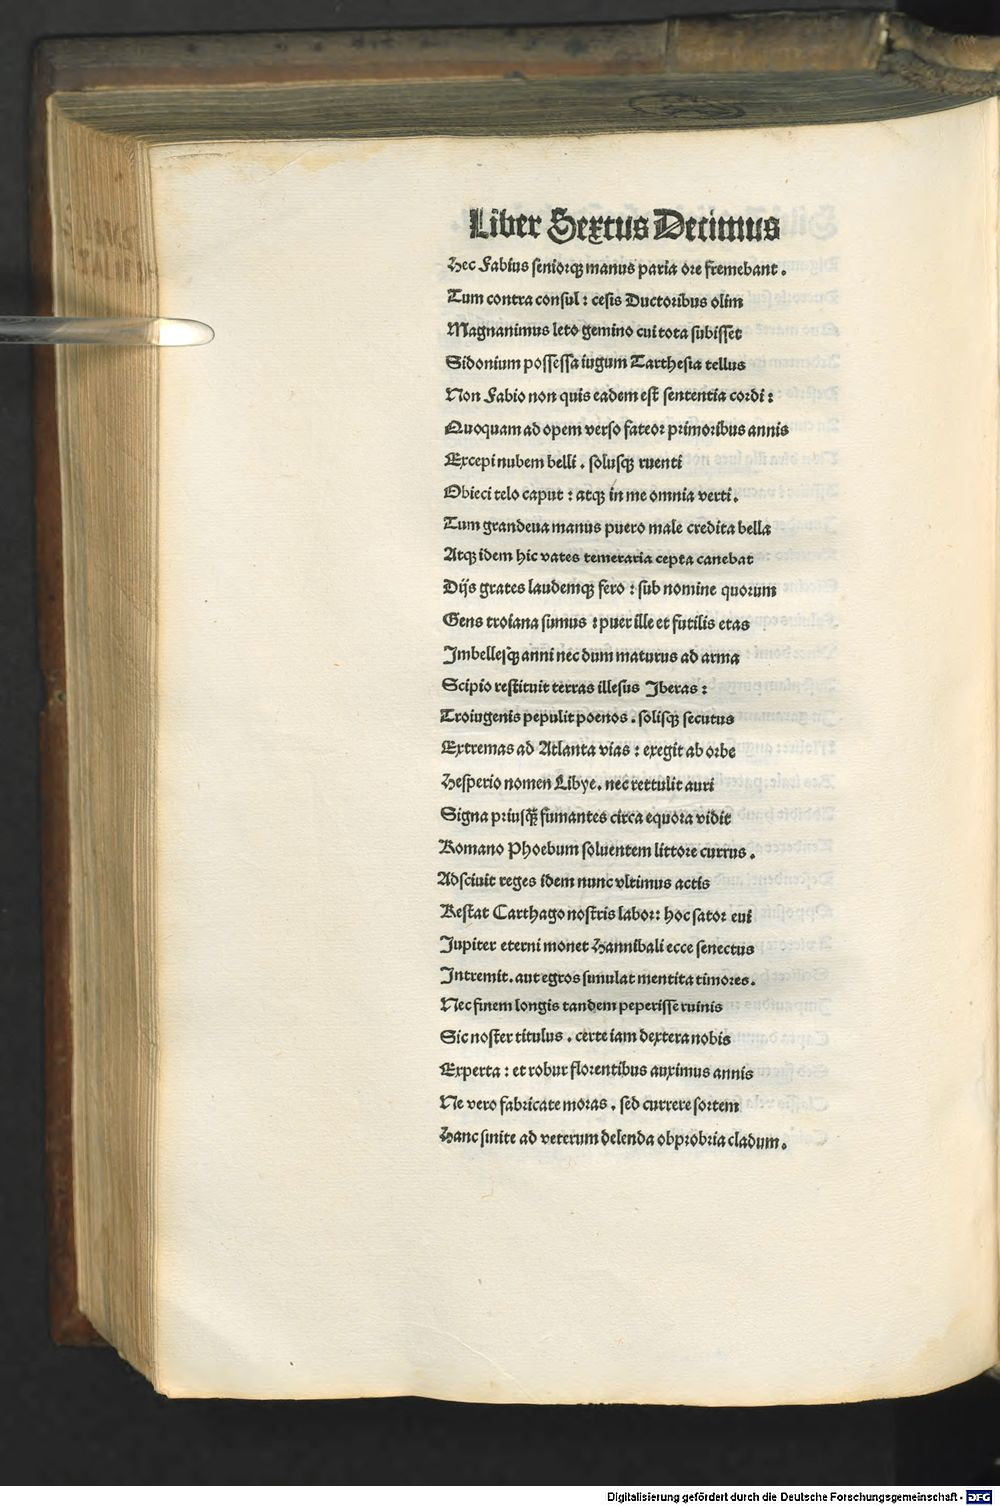 Liber Sextus Decimus
Hec Fabius seniorqꝫ manus paria ore fremebant .
Tum contra consul : cesis Ductoribus olim
Magnanimus leto gemino cui tota subisset
Sidonium possessa iugum Tarthesia tellus
Non Fabio non quis eadem est sententia cordi :
Quoquam ad opem verso fateor primoribus annis
Excepi nubem belli . solusqꝫ ruenti
Obieci telo caput : atqꝫ in me omnia verti .
Tum grandeua manus puero male credita bella
Atqꝫ idem hic vates temeraria cepta canebat
Dijs grates laudemqꝫ fero : sub nomine quorum
Gens troiana sumus : puer ille et futilis etas
Imbellesqꝫ anni nec dum maturus ad arma
Scipio restituit terras illesus Iberas :
Troiugenis pepulit poenos . solisqꝫ secutus
Extremas ad Atlanta vias : exegit ab orbe
Hesperio nomen Libye . nec rettulit auri
Signa priusqꝫ̃ fumantes circa equora vidit
Romano Phoebum soluentem littore currus .
Adsciuit reges idem nunc vltimus actis
Restat Carthago nostris labor : hoc sator eui
Jupiter eterni monet Hannibali ecce senectus
Intremit . aut egros simulat mentita timores .
Nec finem longis tandem peperisse ruinis
Sic noster titulus . certe iam dextera nobis
Experta : et robur florentibus auximus annis
Ne vero fabricate moras . sed currere sortem
Hanc sinite ad veterum delenda obprobria cladum .
Digitalisierung gefördert durch die Deutsche Forschungsgemeinschaft - DFG